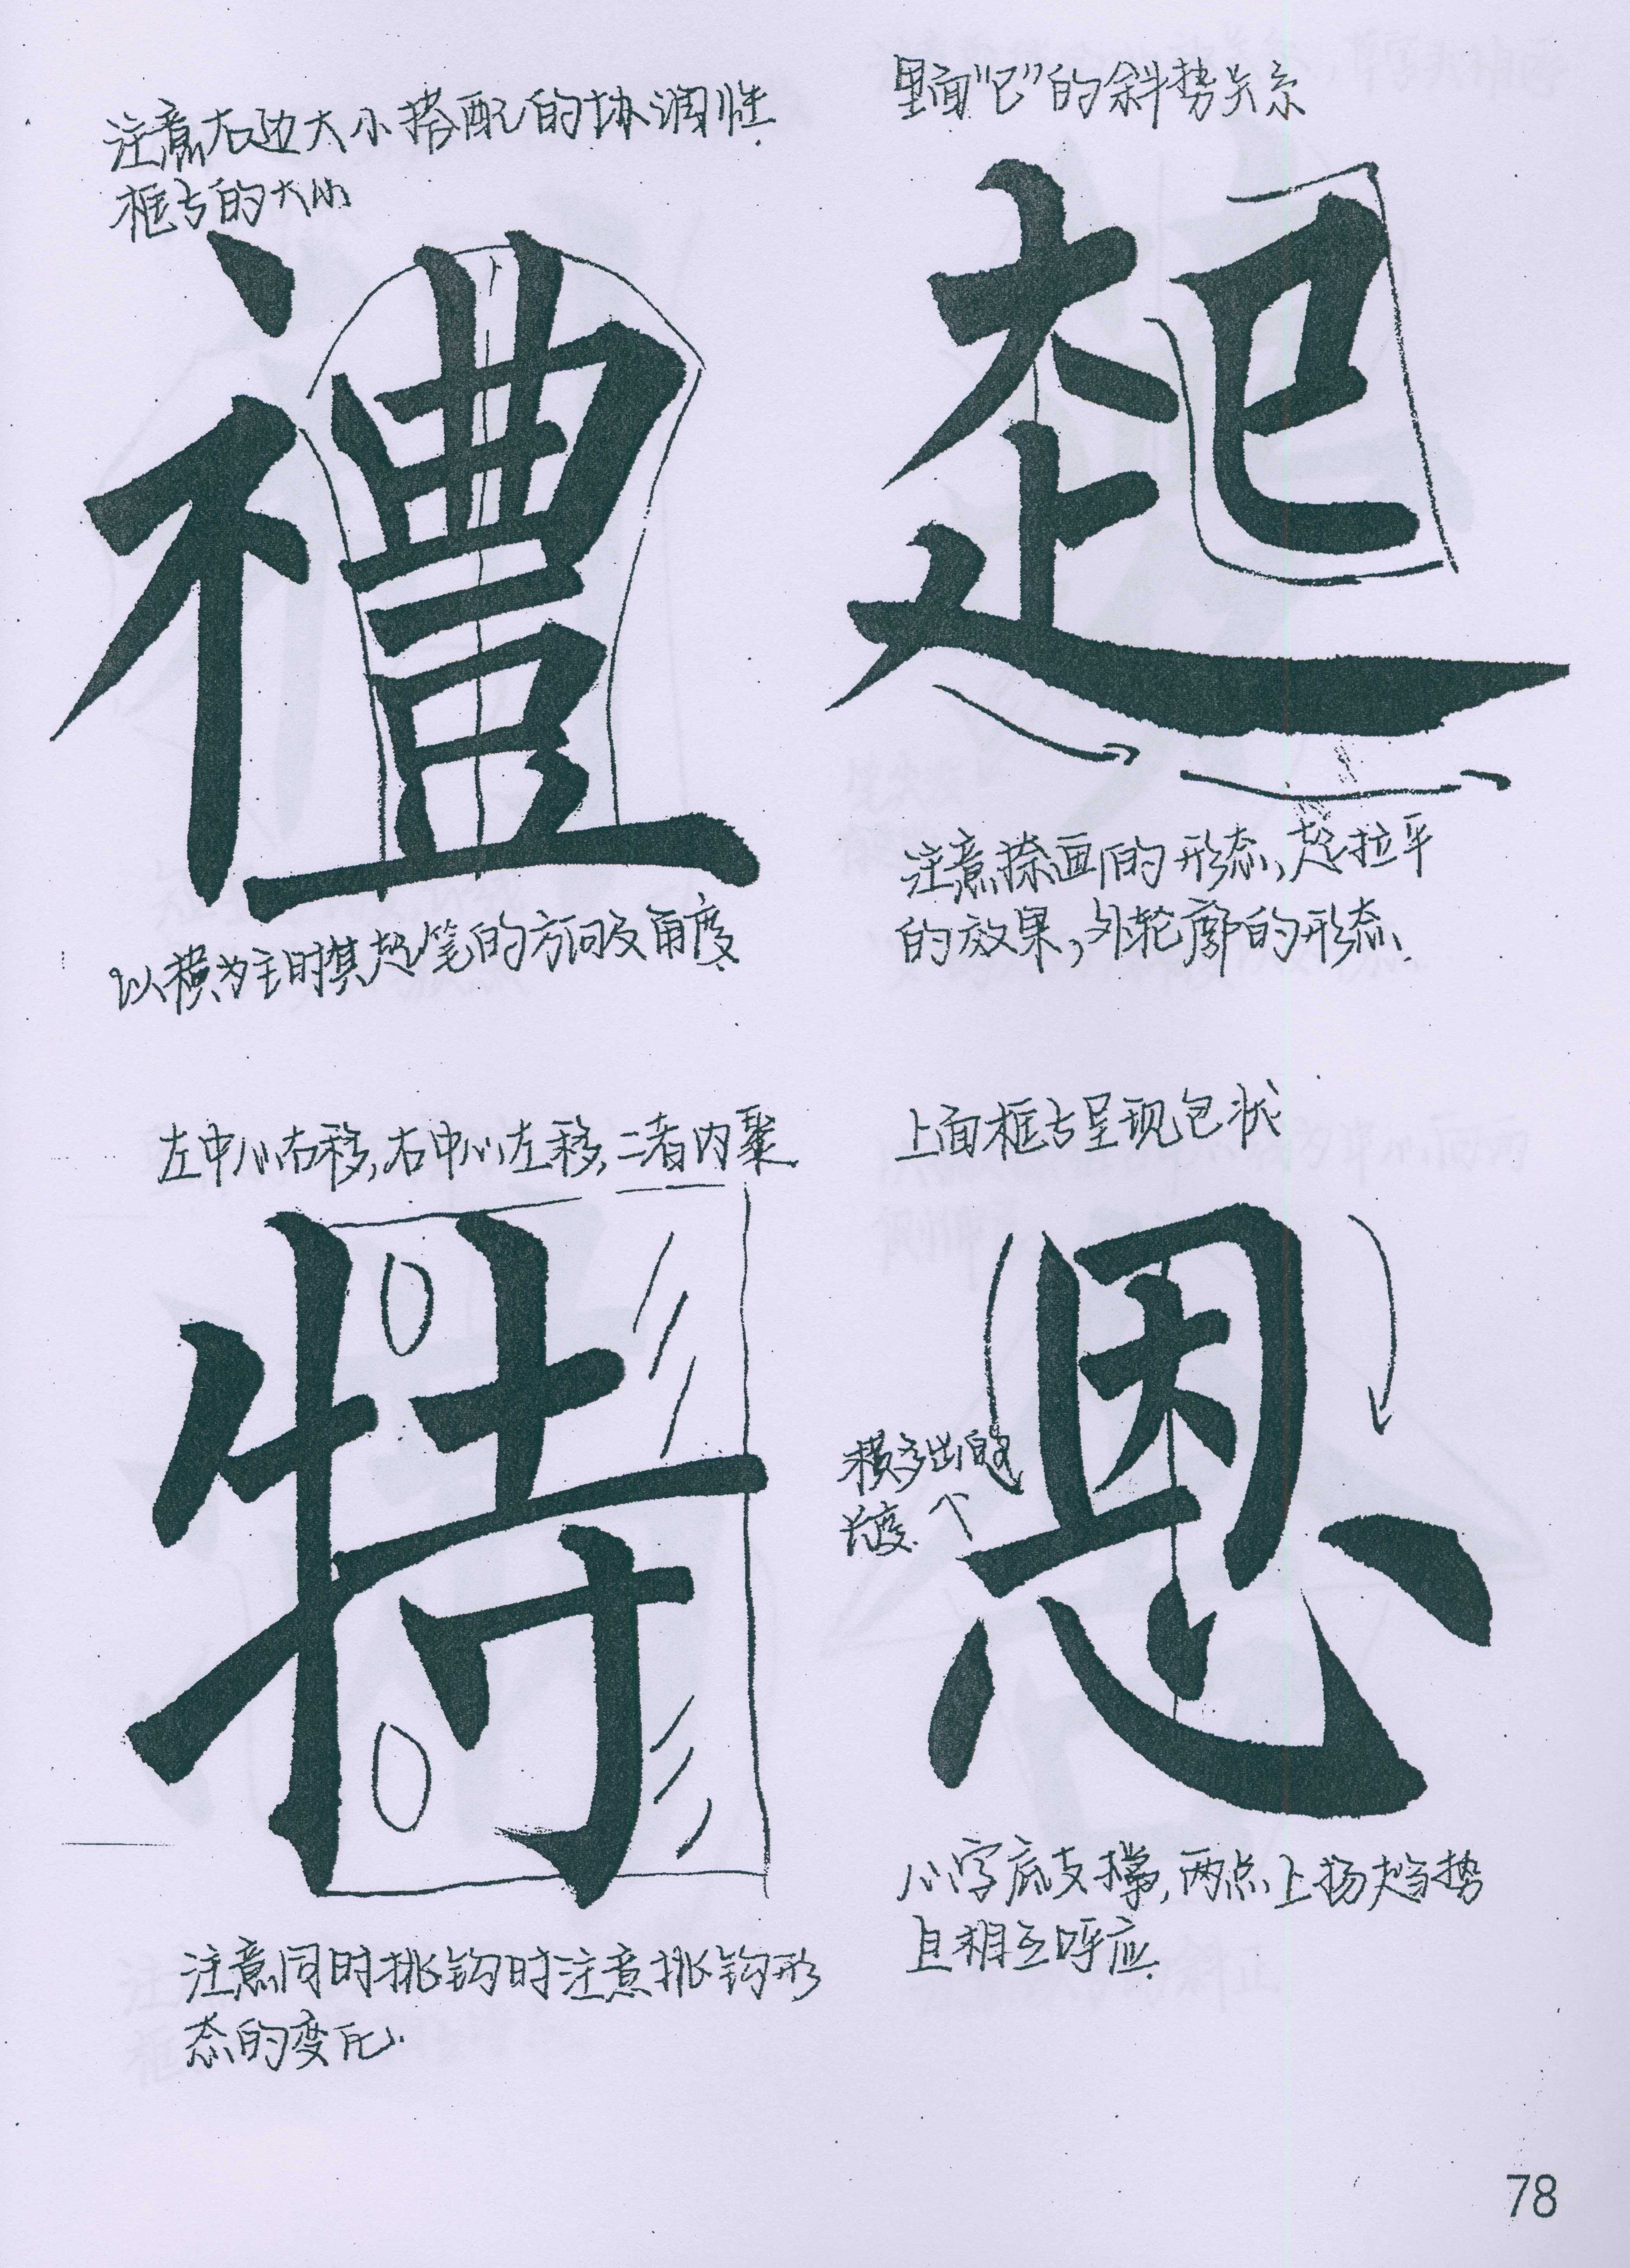 注意右边大小搭配的协调性
框与的大小
禮
以横为主时其起笔的方向及角度
里面“巳”的斜势关系
起
注意捺画的形态,起拉平
的效果,外轮廓的形态.
左中心右移,右中心左移,二者内聚
特
注意同时挑钩时注意挑钩形
态的变化.
上面框与呈现包状
恩
横多出的
长度.
心字底支撑,两点上扬趋势
且相互呼应.
78